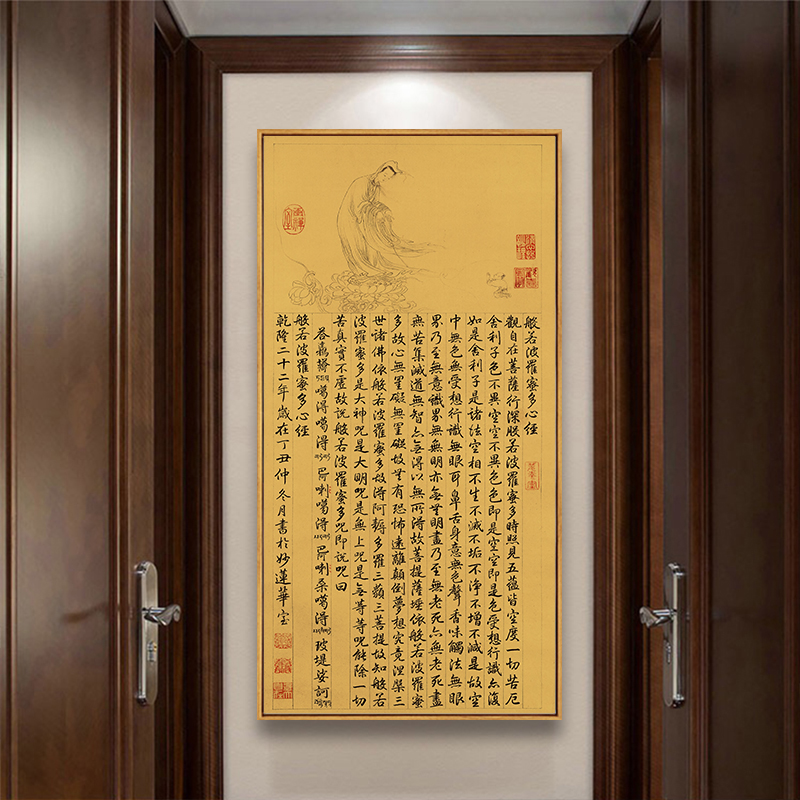 般若波羅蜜多心經
觀自在菩薩行深般若波羅蜜多時照見五蘊皆空度一切苦厄
舍利子色不異空空不異色色即是空空即是色受想行識亦復
如是舍利子是諸法空相不生不滅不垢不淨不增不減是故空
中無色無受想行識無眼耳鼻舌身意無色聲香味觸法無眼
界乃至無意識界無無明亦無無明盡乃至無老死亦無老死盡
無苦集滅道無智亦無得以無所得故菩提薩埵依般若波羅蜜
多故心無罣礙無罣礙故無有恐怖遠離顛倒夢想究竟涅槃三
世諸佛依般若波羅蜜多故得阿耨多羅三藐三菩提故知般若
波羅蜜多是大神咒是大明咒是無上咒是無等等咒能除一切
苦真實不虛故說般若波羅蜜多咒即說咒曰
噶得噶得 喇噶得 喇桑噶得 玻堤娑訶
般若波羅蜜多心經
乾隆二十二年歲在丁丑仲冬月書於妙蓮華室